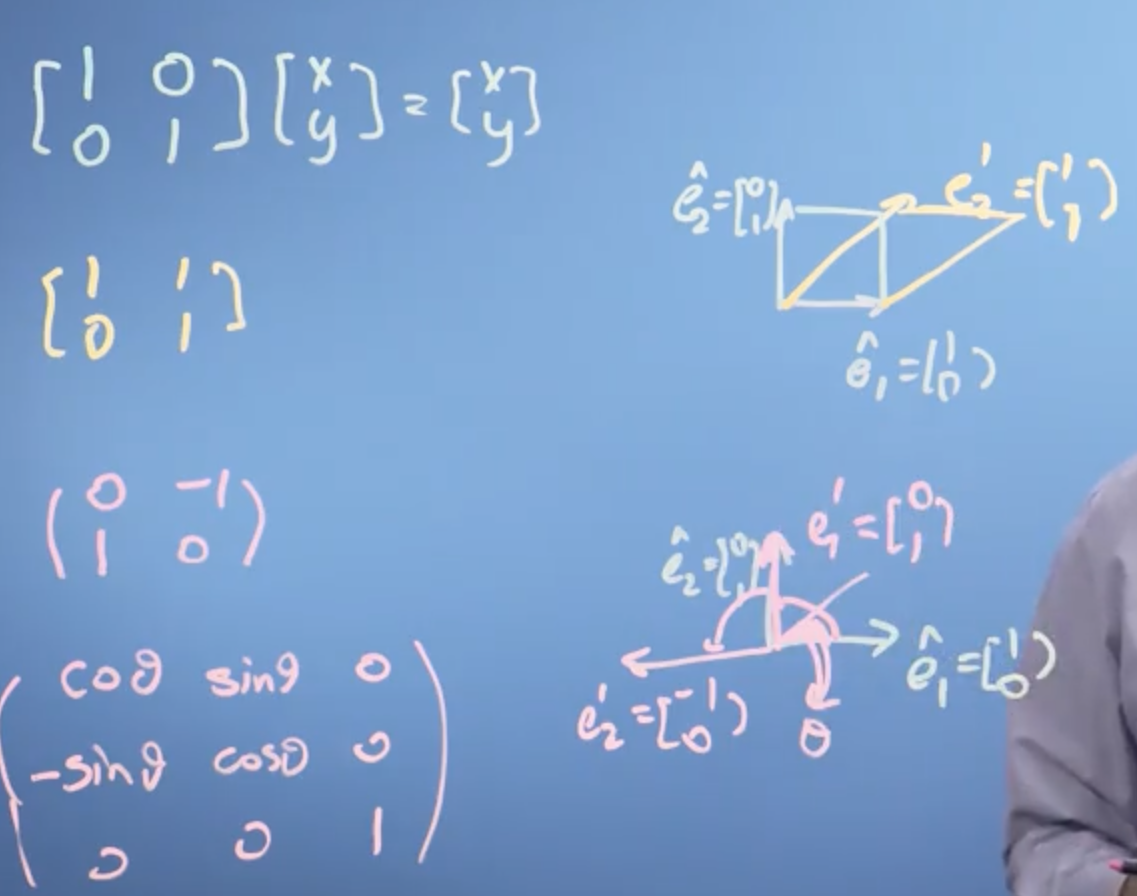 [1 0; 0 1] [x; y] = [x; y]
ê₂ = [0; 1]
e₂' = [1; 1]
[1 1; 0 1]
ê₁ = [1; 0]
(0 -1; 1 0)
e₁' = [0; 1]
ê₂ = [0; 1]
ê₁ = [1; 0]
e₂' = [-1; 0]
θ
(coθ sinθ 0
-sinθ cosθ 0
0 0 1)